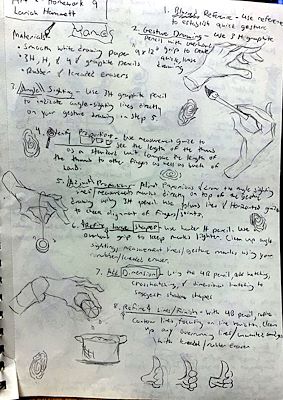 Homework 9
Hands
Materials
• Smooth white drawing paper 9x12"
• 3H, H, & 4B graphite pencils
• Rubber & kneaded erasers
1. Reference - Use reference
to establish quick gesture
2. Gesture Drawing - Use 3H graphite
pencil with overhand
grip to create
quick, loose
drawing
3. Angle Sighting - Use 3H graphite pencil
to indicate angle-sighting lines directly
on your gesture drawing in step 2.
4. Identify Proportions - Use measurement guide to
see the length of the thumb
as a standard unit. Compare the length of
the thumb to other fingers as well as back of
hand.
5. Adjust Proportions - Adjust Proportions & draw the angle sighting
lines/measurements marks directly on top of the gesture
drawing using 3H pencil. Use plumb lines & Horizontal guides
to check alignment of fingers/joints.
6. Refine large shapes - Use harder H pencil. Use
overhand grip to keep marks lighter. Clean up angle
sighting, measurement lines/gesture marks using your
rubber/kneaded eraser.
7. Add Dimension - Using the 4B pencil add hatching,
crosshatching, & dimensional hatching to
suggest shadow shapes
8. Refine Lines/Finish - With 4B pencil, refine
contour lines, focusing on line variation. Clean
up any overrunning lines/unwanted marks
with kneaded/rubber eraser